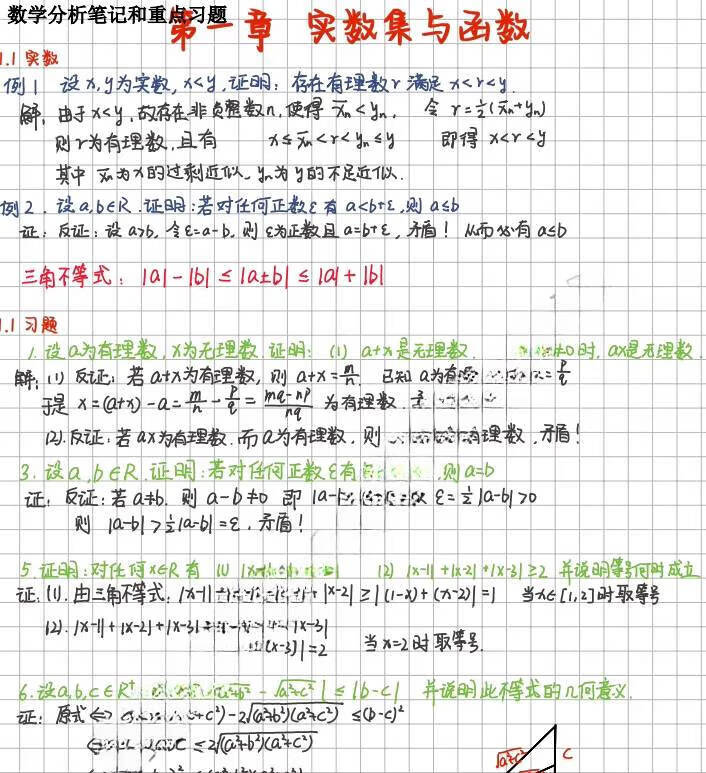 数学分析笔记和重点习题
第一章 实数集与函数
1.1 实数
例1 设x,y为实数,x<y,证明:存在有理数r满足x<r<y.
解:由于x<y,故存在非负整数n,使得 x̄ₙ<yₙ, 令 r=½(x̄ₙ+yₙ)
则r为有理数,且有 x≤x̄ₙ<r<yₙ≤y 即得 x<r<y
其中 x̄ₙ为x的过剩近似, yₙ为y的不足近似.
例2. 设a,b∈R.证明:若对任何正数ε有a<b+ε,则a≤b
证:反证:设a>b,令ε=a-b,则ε为正数且a=b+ε,矛盾! 从而必有a≤b
三角不等式: |a|-|b|≤|a±b|≤|a|+|b|
1.1 习题
1.设a为有理数,x为无理数.证明: (1) a+x是无理数. ≠0时,ax是无理数.
解:(1)反证:若a+x为有理数,则a+x=m/n. 已知a为有 =p/q
于是 x=(a+x)-a=m/n-p/q=(mq-np)/nq 为有理数.
(2).反证:若ax为有理数.而a为有理数,则 有理数,矛盾!
3.设a,b∈R.证明:若对任何正数ε有 ,则a=b
证:反证:若a≠b.则a-b≠0 即|a-b ε=½|a-b|>0
则 |a-b|>½|a-b|=ε,矛盾!
5.证明:对任何x∈R有 (1) |x (2) |x-1|+|x-2|+|x-3|≥2 并说明等号何时成立
证:(1).由三角不等式,|x-1|+ |x-2|≥|(1-x)+(x-2)|=1 当x∈[1,2]时取等号
(2).|x-1|+|x-2|+|x-3| |x-3|
(x-3)|=2 当x=2时取等号.
6.设a,b,c∈R⁺. -√(a²+c²)|≤|b-c| 并说明此不等式的几何意义.
证:原式⇔ +c²)-2√((a²+b²)(a²+c²)) ≤(b-c)²
⇔ ≤2√((a²+b²)(a²+c²))
√(a²+c²) c